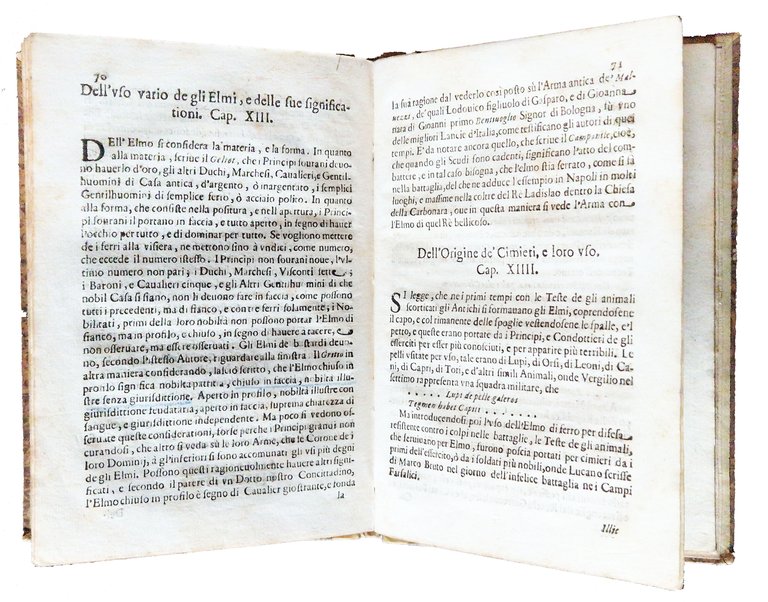 70
Dell'vso vario de gli Elmi, e delle sue significa-
tioni. Cap. XIII.
DEll'Elmo si considera la materia, e la forma. In quanto
alla materia, scriue il Geliot, che i Principi sourani deuo
no hauerlo d'oro, gli altri Duchi, Marchesi, Caualieri, e Gentil-
huomini di Casa antica, d'argento, ò inargentato, i semplici
Gentilhuomini di semplice ferro, ò acciaio polito. In quanto
alla forma, che consiste nella positura, e nell'apertura, i Princi-
pi sourani il portano in faccia, e tutto aperto, in segno di hauer
l'occhio per tutto, e di dominar per tutto. Se vogliono mettere
de i ferri alla visiera, ne mettono sino à vndici, come numero,
che eccede il numero istesso. I Principi non sourani noue, l'vl-
timo numero non pari; i Duchi, Marchesi, Visconti sette;
i Baroni, e Caualieri cinque, e gli Altri Gentilhuomini di che
nobil Casa si siano, non li deuono fare in faccia, come possono
tutti i precedenti, ma di fianco, e con tre ferri solamente; i No-
bilitati, primi della loro nobiltà non possono portar l'Elmo di
fianco, ma in profilo, e chiuso, in segno d'hauer a tacere,
non osseruare, ma essere osseruati. Gli Elmi de bastardi deuo-
no, secondo l'istesso Autore, riguardare alla sinistra. Il
altra maniera considerando, lasciò scritto, che l'Elmo chiuso in
profilo significa nobiltà patritia, chiuso in faccia, nobiltà illu-
stre senza giurisdittione. Aperto in profilo, nobiltà illustre con
giurisdittione feudataria, aperto in faccia, suprema chiarezza di
sangue, e giurisdittione independente. Ma poco si vedono os-
seruate queste considerationi, forse perche i Principi grandi non
curandosi, che altro si veda sù le loro Arme, che le Corone de i
loro Dominij, à gl'inferiori si sono accomunati gli vsi più degni
de gli Elmi. Possono questi ragioneuolmente hauere altri signi-
ficati, e secondo il parere di vn Dotto nostro Concittadino,
l'Elmo chiuso in profilo è segno di Caualier giostrante, e fonda
la
71
la sua ragione dal vederlo così posto sù l'Arma antica de' Mal-
uezzi, de' quali Lodouico figliuolo di Gasparo, e di Gioanna
nata di Gioanni primo Bentiuoglio Signor di Bologna, fù vno
de migliori Lancie d'Italia, come testificano gli autori di quei
tempi. E' da notare ancora quello, che scriue il Campanile, cioè,
che quando gli Scudi sono cadenti, significano Patto del com-
battere, e in tal caso bisogna, che l'elmo stia serrato, come si fà
nella battaglia, del che ne adduce l'essempio in Napoli in molti
luoghi, e massime nella coltre del Rè Ladislao dentro la Chiesa
della Carbonara, oue in questa maniera si vede l'Arma con
l'Elmo di quel Rè bellicoso.
Dell'Origine de' Cimieri, e loro vso.
Cap. XIIII.
SI legge, che ne i primi tempi con le Teste de gli animali
scorticati gli Antichi si formauano gli Elmi, coprendosene
il capo, e col rimanente delle spoglie vestendosene le spalle, e'l
petto, e queste erano portate da i Principi, e Condottieri de gli
esserciti per esser più conosciuti, e per apparire più terribili. Le
pelli vsitate per vso, tale erano di Lupi, di Orsi, di Leoni, di Ca-
ni, di Capri, di Tori, e d'altri simili Animali, onde Vergilio nel
settimo rappresenta vna squadra militare, che
. . . . . Lupi de pelle galeros
Tegmen habet Capiti . . . . . .
Ma introducendosi poi l'vso dell'Elmo di ferro per difesa
resistente contro i colpi nelle battaglie, le Teste de gli animali,
che seruiuano per Elmo, furono poscia portati per cimieri da i
primi dell'essercito, ò da i soldati più nobili, onde Lucano scrisse
di Marco Bruto nel giorno dell'infelice battaglia ne i Campi
Farsalici.
Illic